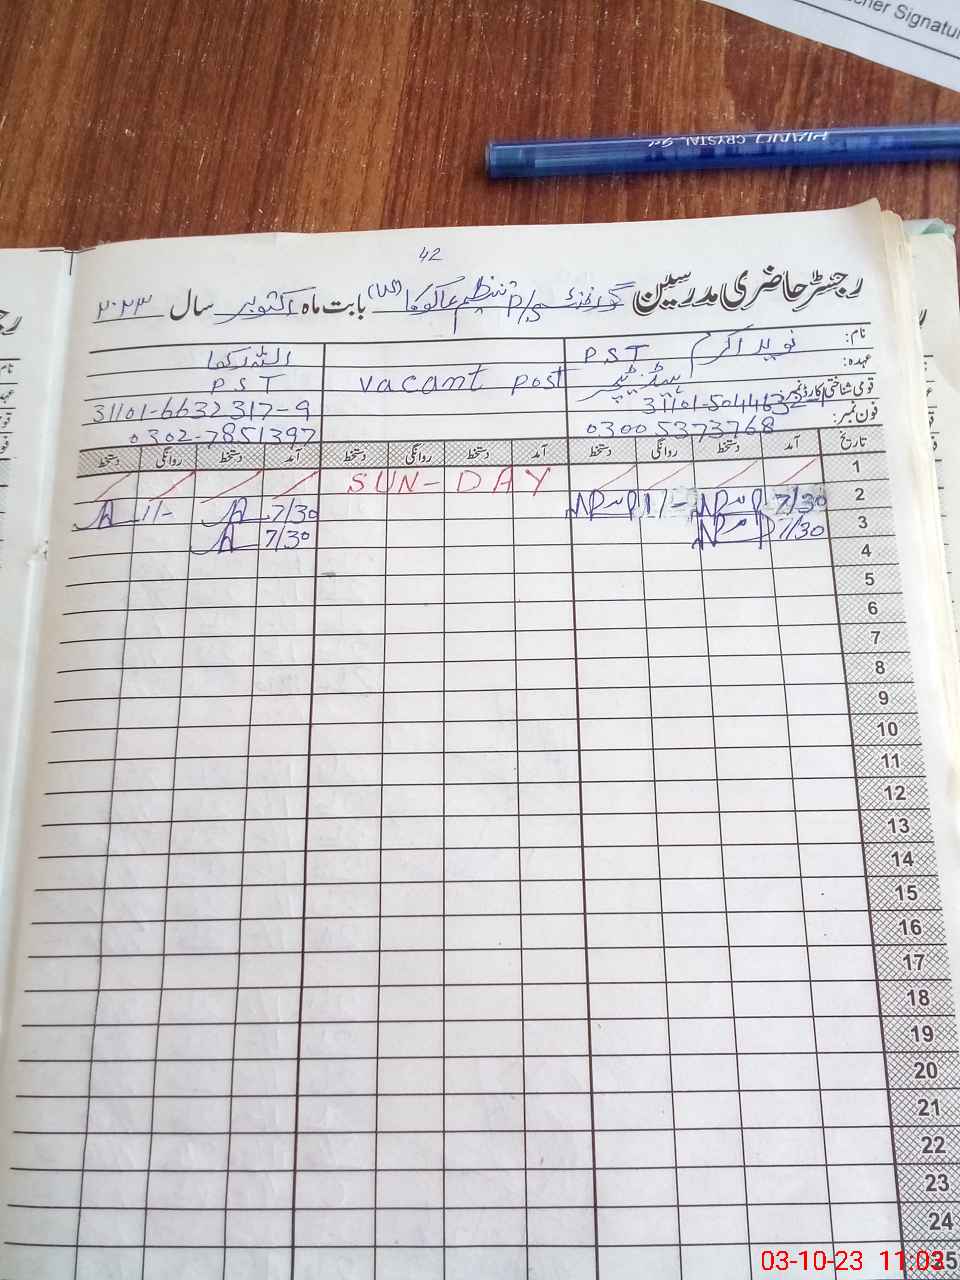 cher Signatu
PIANO CRYSTAL Gel
42
رجسٹر حاضری مدرسین گورنمنٹ P/S تنظیم بابت ماہ اکتوبر سال ۲۰۲۳
نام: نوید اکرم PST
عہدہ: ہیڈ ٹیچر
قومی شناختی کارڈ نمبر:
فون نمبر: 03005373768
vacant post
PST
31101-6632317-9
0302-7851397
تاریخ آمد دستخط روانگی دستخط آمد دستخط روانگی دستخط آمد دستخط روانگی دستخط
1 SUN-DAY
2 7/30 1/- 7/30 1/-
3 7/30 7/30
4
5
6
7
8
9
10
11
12
13
14
15
16
17
18
19
20
21
22
23
24
25
03-10-23 11:03